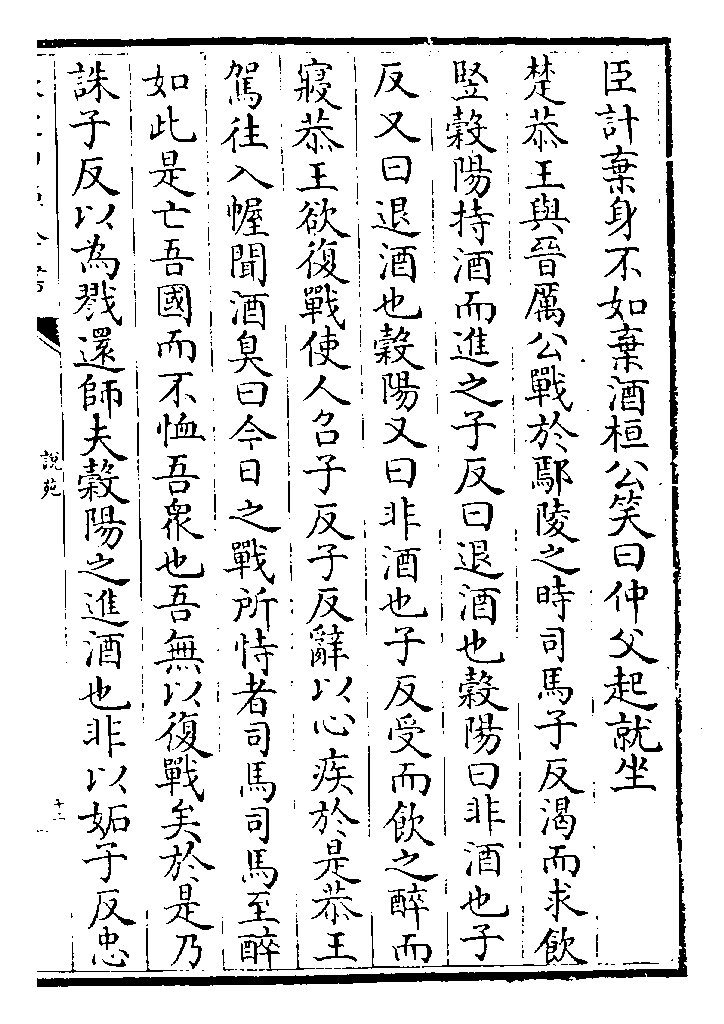 臣計棄身不如棄酒桓公笑曰仲父起就坐
楚恭王與晉厲公戰於鄢陵之時司馬子反渴而求飲
豎糓陽持酒而進之子反曰退酒也糓陽曰非酒也子
反又曰退酒也糓陽又曰非酒也子反受而飲之醉而
寢恭王欲復戰使人召子反子反辭以心疾於是恭王
駕往入幄聞酒臭曰今日之戰所恃者司馬司馬至醉
如此是亡吾國而不恤吾衆也吾無以復戰矣於是乃
誅子反以為戮還師夫糓陽之進酒也非以妬子反忠
說苑
十二